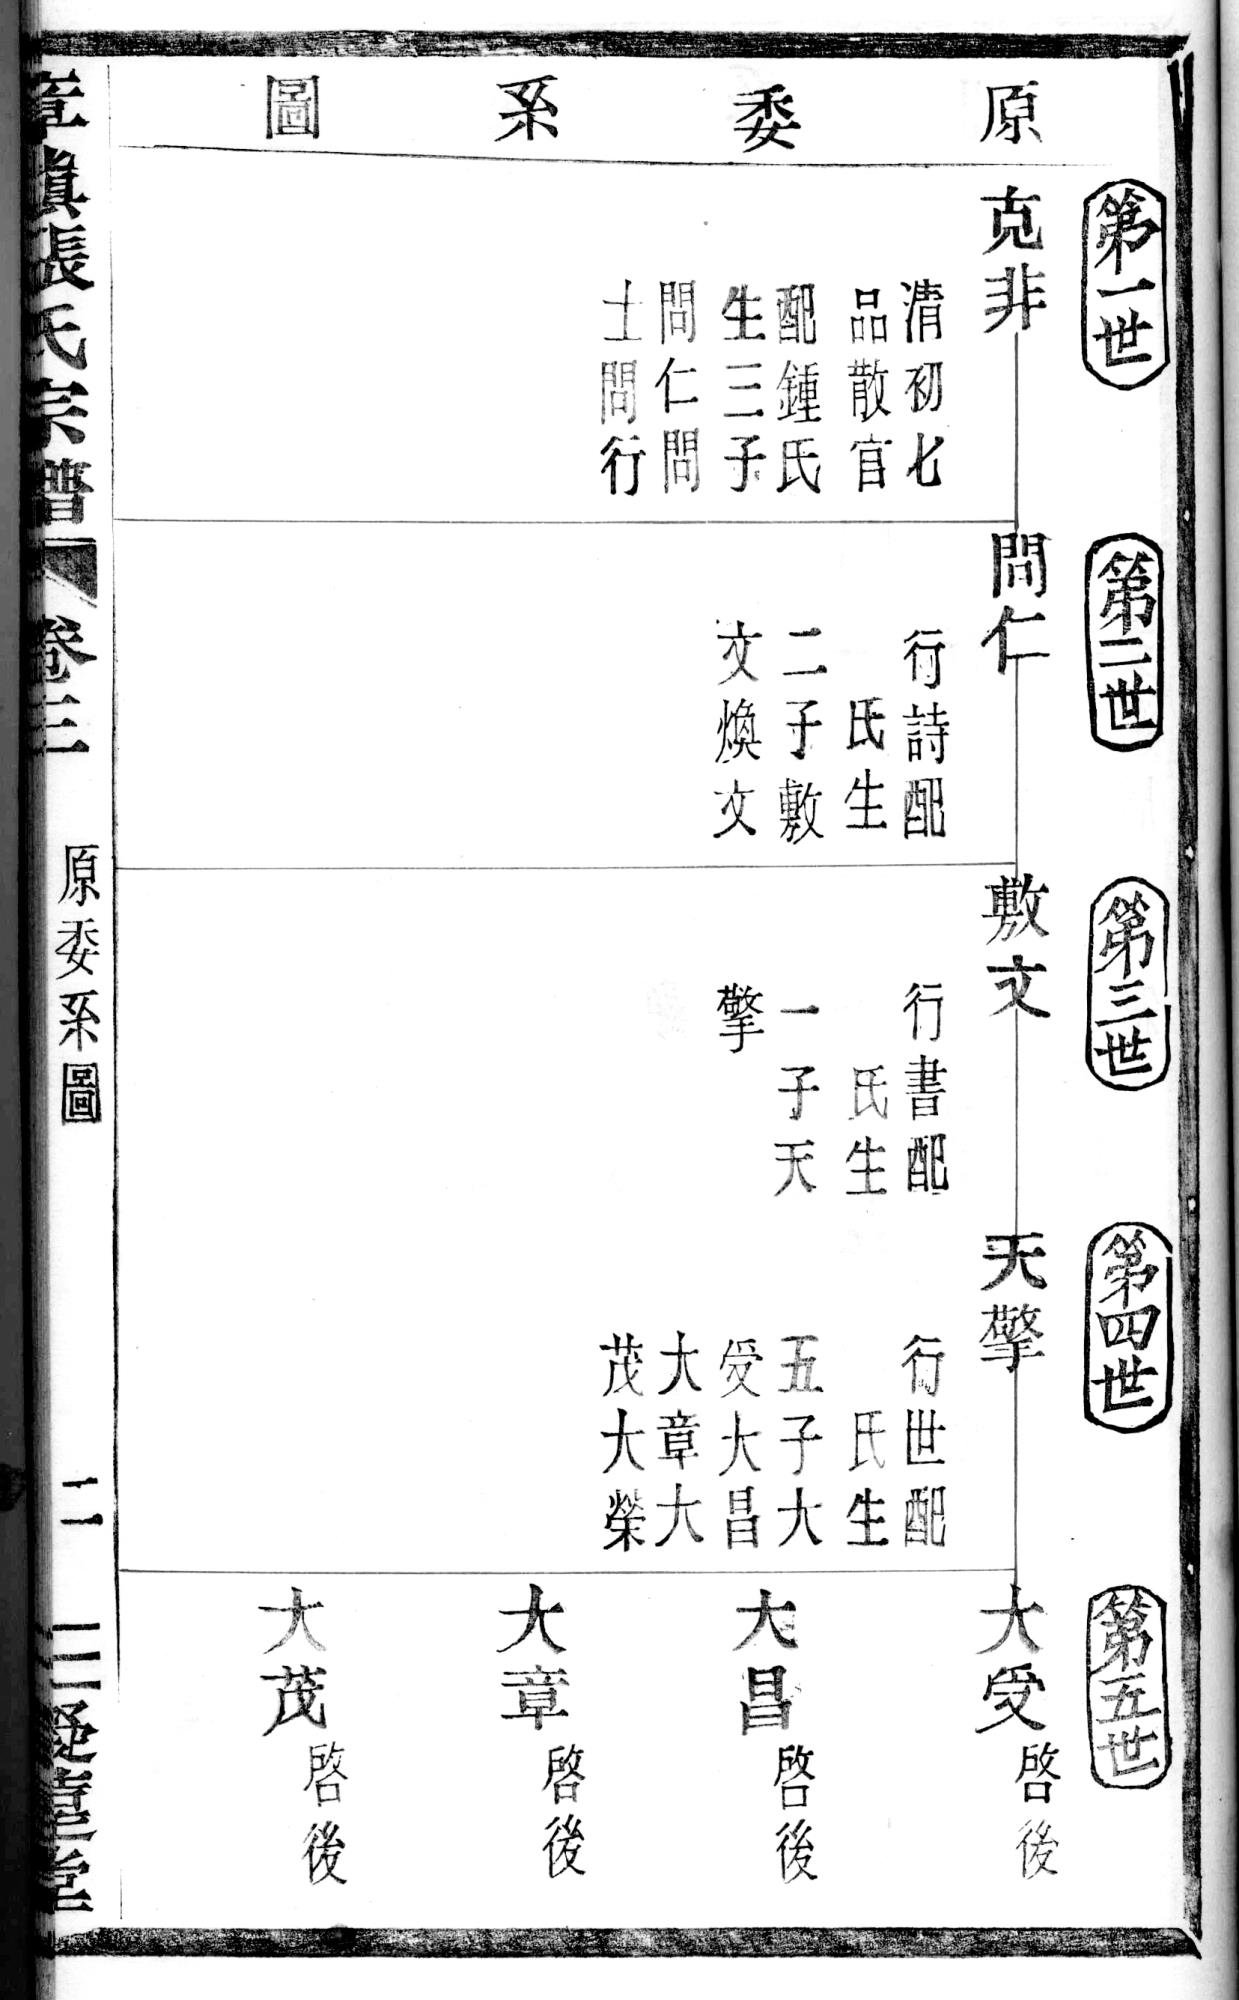 原委系圖
第一世
克非
清初七
品散官
配鍾氏
生三子
問仁問
士問行
第二世
問仁
行詩配
氏生
二子敷
文煥文
第三世
敷文
行書配
氏生
一子天
擎
第四世
天擎
行世配
氏生
五子大
受大昌
大章大
茂大榮
第五世
大受
啓後
大昌
啓後
大章
啓後
大茂
啓後
章鎮張氏宗譜
卷三
原委系圖
二
三凝堂